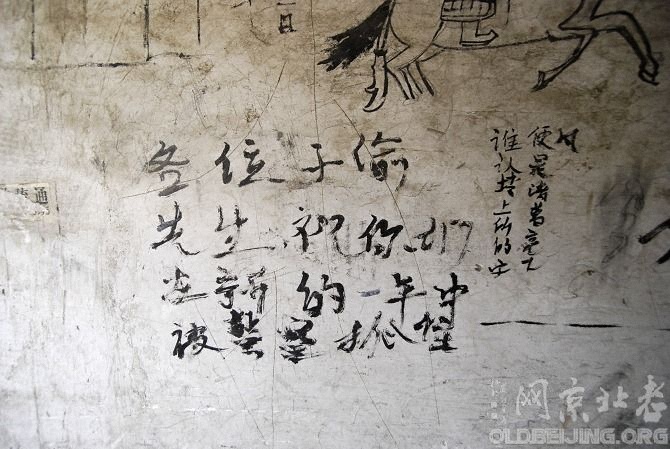 各位子偷
先生.祝你们
在新的一年中
被警察抓
谁认塔上所的字
便是
通
老北京网
OLDBEIJING.ORG